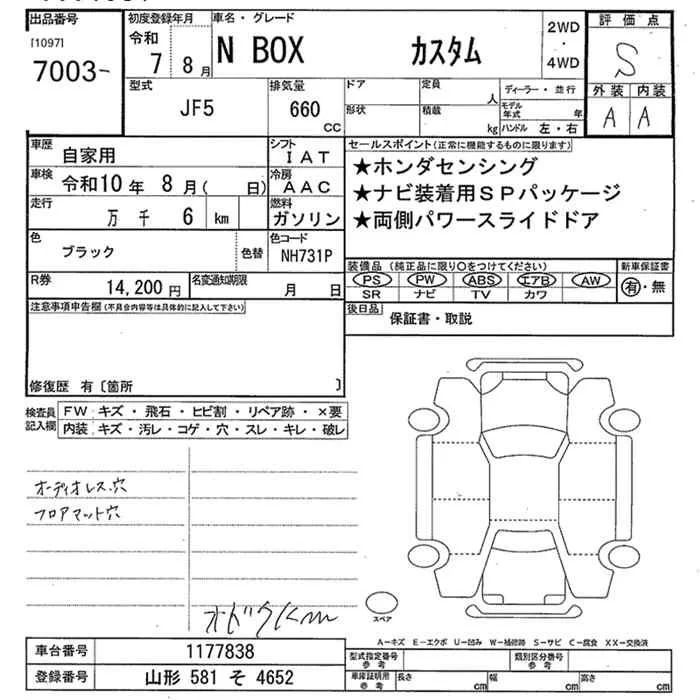 出品番号
[1097]
7003-
初度登録年月
令和
7 8 月
車名・グレード
N BOX カスタム
2WD
・
4WD
評価点
S
外装 内装
A A
型式
JF5
排気量
660
CC
ドア
形状
定員
人
積載
kg
ディーラー・並行
モデル年式 年
ハンドル 左・右
車歴
自家用
シフト
IAT
車検 令和10年 8月( 日)
冷房
AAC
走行 万 千 6 km
燃料
ガソリン
色
ブラック
色替
色コード
NH731P
セールスポイント(正常に機能するものに限ります)
★ホンダセンシング
★ナビ装着用SPパッケージ
★両側パワースライドドア
R券
14,200 円
名変通知期限
月 日
装備品 (純正品に限り○をつけてください)
PS PW ABS エアB AW
SR ナビ TV カワ
新車保証書
有・無
後日品
保証書・取説
注意事項申告欄(不具合内容等は具体的に記入して下さい)
修復歴 有〔箇所 〕
検査員記入欄
FW キズ・飛石・ヒビ割・リペア跡・×要
内装 キズ・汚レ・コゲ・穴・スレ・キレ・破レ
オーディオレス穴
フロアマット穴
スペア
A−キズ E−エクボ U−凹み W−補修跡 S−サビ C−腐食 XX−交換済
車台番号 1177838
登録番号 山形 581 そ 4652
型式指定番号
参考
類別区分番号
参考
車庫証明用
参考
長さ cm
幅 cm
高さ cm